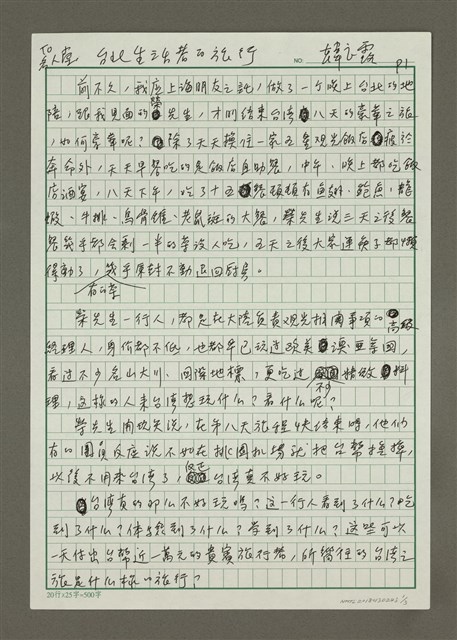 台北生活者的旅行 NO. 韓良露 P1
前不久,我應上海朋友之託,做了一个晚上台北的地
陪,跟我見面的榮先生,才剛結束台灣八天的豪華之旅
,如何豪華呢?除了天天換住一家五星觀光飯店疲於
奔命外,天天早餐吃的是飯店自助餐,中午、晚上都吃飯
店酒宴,八天下来,吃了十五餐頓頓有魚翅、鮑魚、龍
蝦、牛排、烏骨雞、老鼠斑的大餐,榮先生說三天之後餐
餐幾乎都会剩一半的菜没人吃,五天之後大家連筷子都懶
得動了,有的菜幾乎原封不動退回廚房。
榮先生一行人,都是在大陸負責觀光招商事項的高級
經理人,身份都不低,也都早已玩过歐美澳亞等國,
看过不少名山大川、回際地標,更吃过不少精緻料
理,這樣的人来台灣想玩什么?看什么呢?
榮先生開玩笑說,在第八天旅程快結束時,他們
有的團員反应說不如在桃園机場就把台幣捐掉,
以後不用來台灣了,反正台灣真不好玩。
台灣真的那么不好玩嗎?這一行人看到了什么?吃
到了什么?体驗到了什么?学到了什么?這些可以
一天付出台幣近一萬元的貴賓旅行者,所嚮往的台灣之
旅是什么樣的旅行?
20行×25字=500字